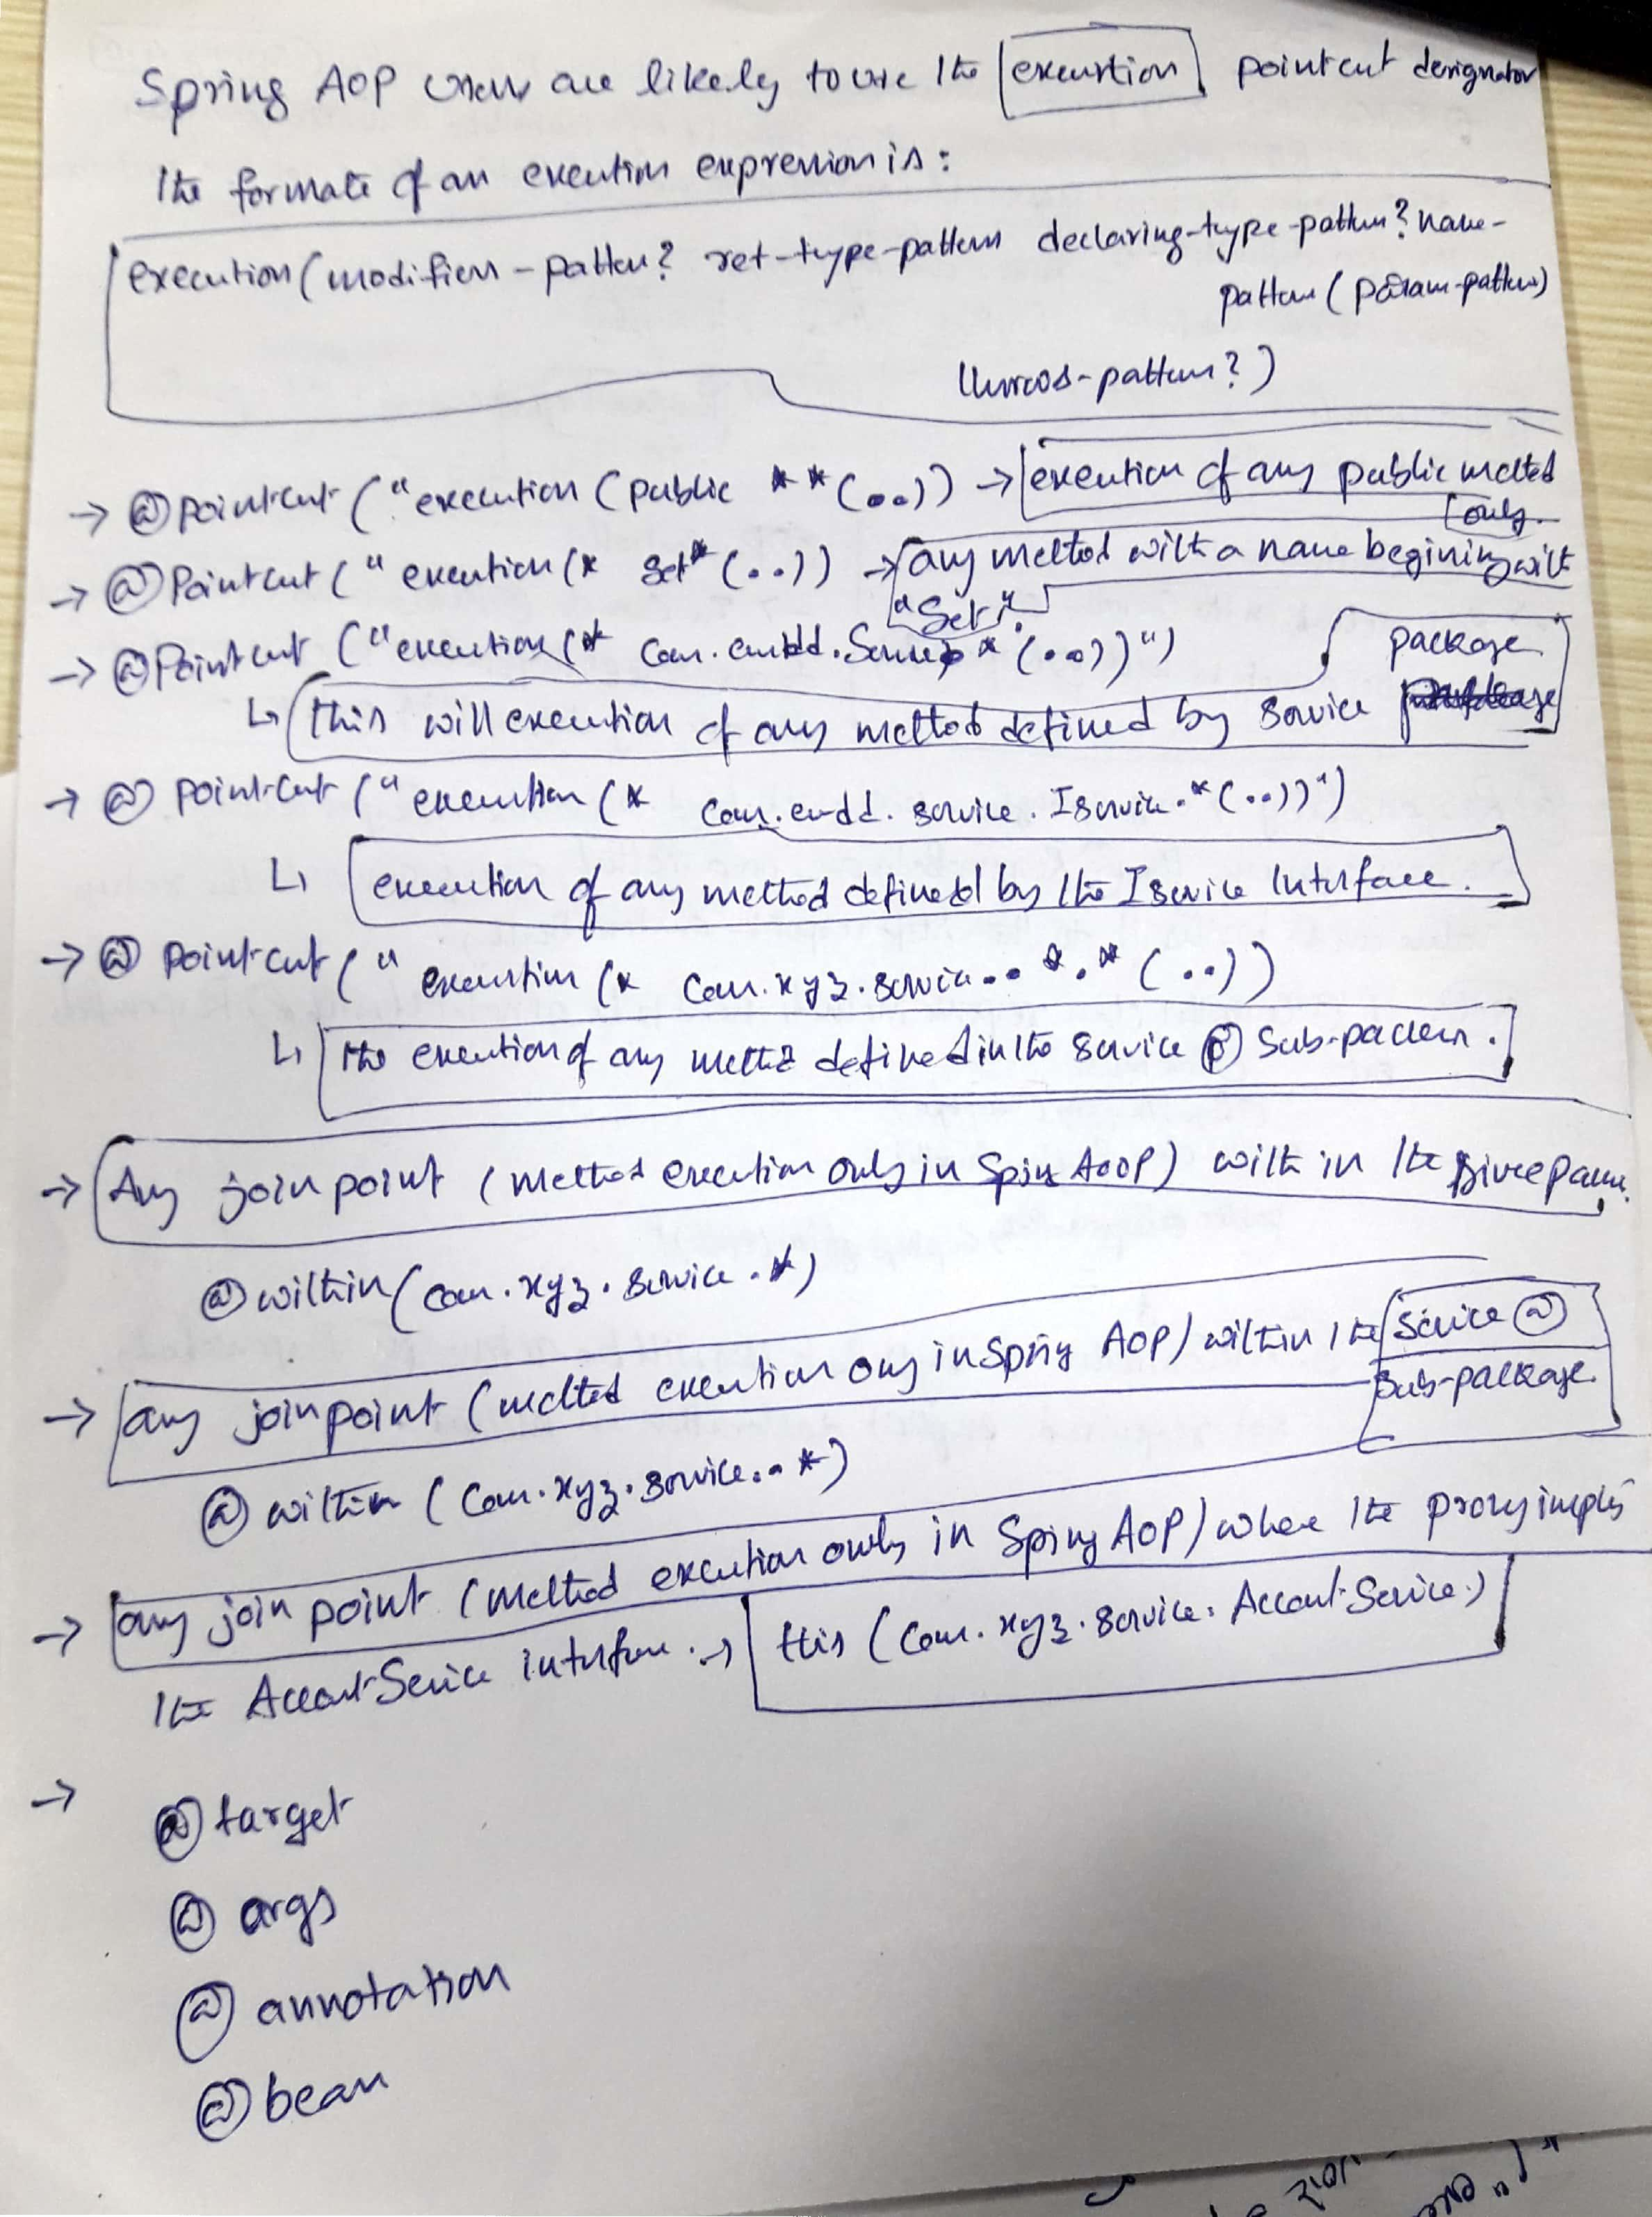 Spring AOP users are likely to use the execution pointcut designator
The formate of an execution expression is:
execution(modifiers-pattern? ret-type-pattern declaring-type-pattern? name-
pattern (param-pattern)
throws-pattern?)
→ @pointcut ("execution (public * * (..)) → execution of any public method
only.
→ @Pointcut (" execution (* set* (..)) → any method with a name begining with
"Set".
→ @Pointcut ("execution (* com. .Service * (..))")
package
↳ this will execution of any method defined by service
→ @ pointcut (" execution (* com. . service . Iservice.* (..))")
↳ execution of any method defined by the Iservice Interface.
→ @ pointcut (" execution (* com.xyz.service.. *.* (..))
↳ the execution of any method defined in the service @ Sub-
→ Any join point (method execution only in Spring AOP) with in the
@within (com.xyz.service.*)
→ any join point (method execution only in Spring AOP) within the service @
Sub-package.
@ within (com.xyz.service..*)
→ any join point (method execution only in Spring AOP) where the proxy
the AccountService interface. → this (com.xyz.service.AccountService)
→
@target
@ args
@ annotation
@bean